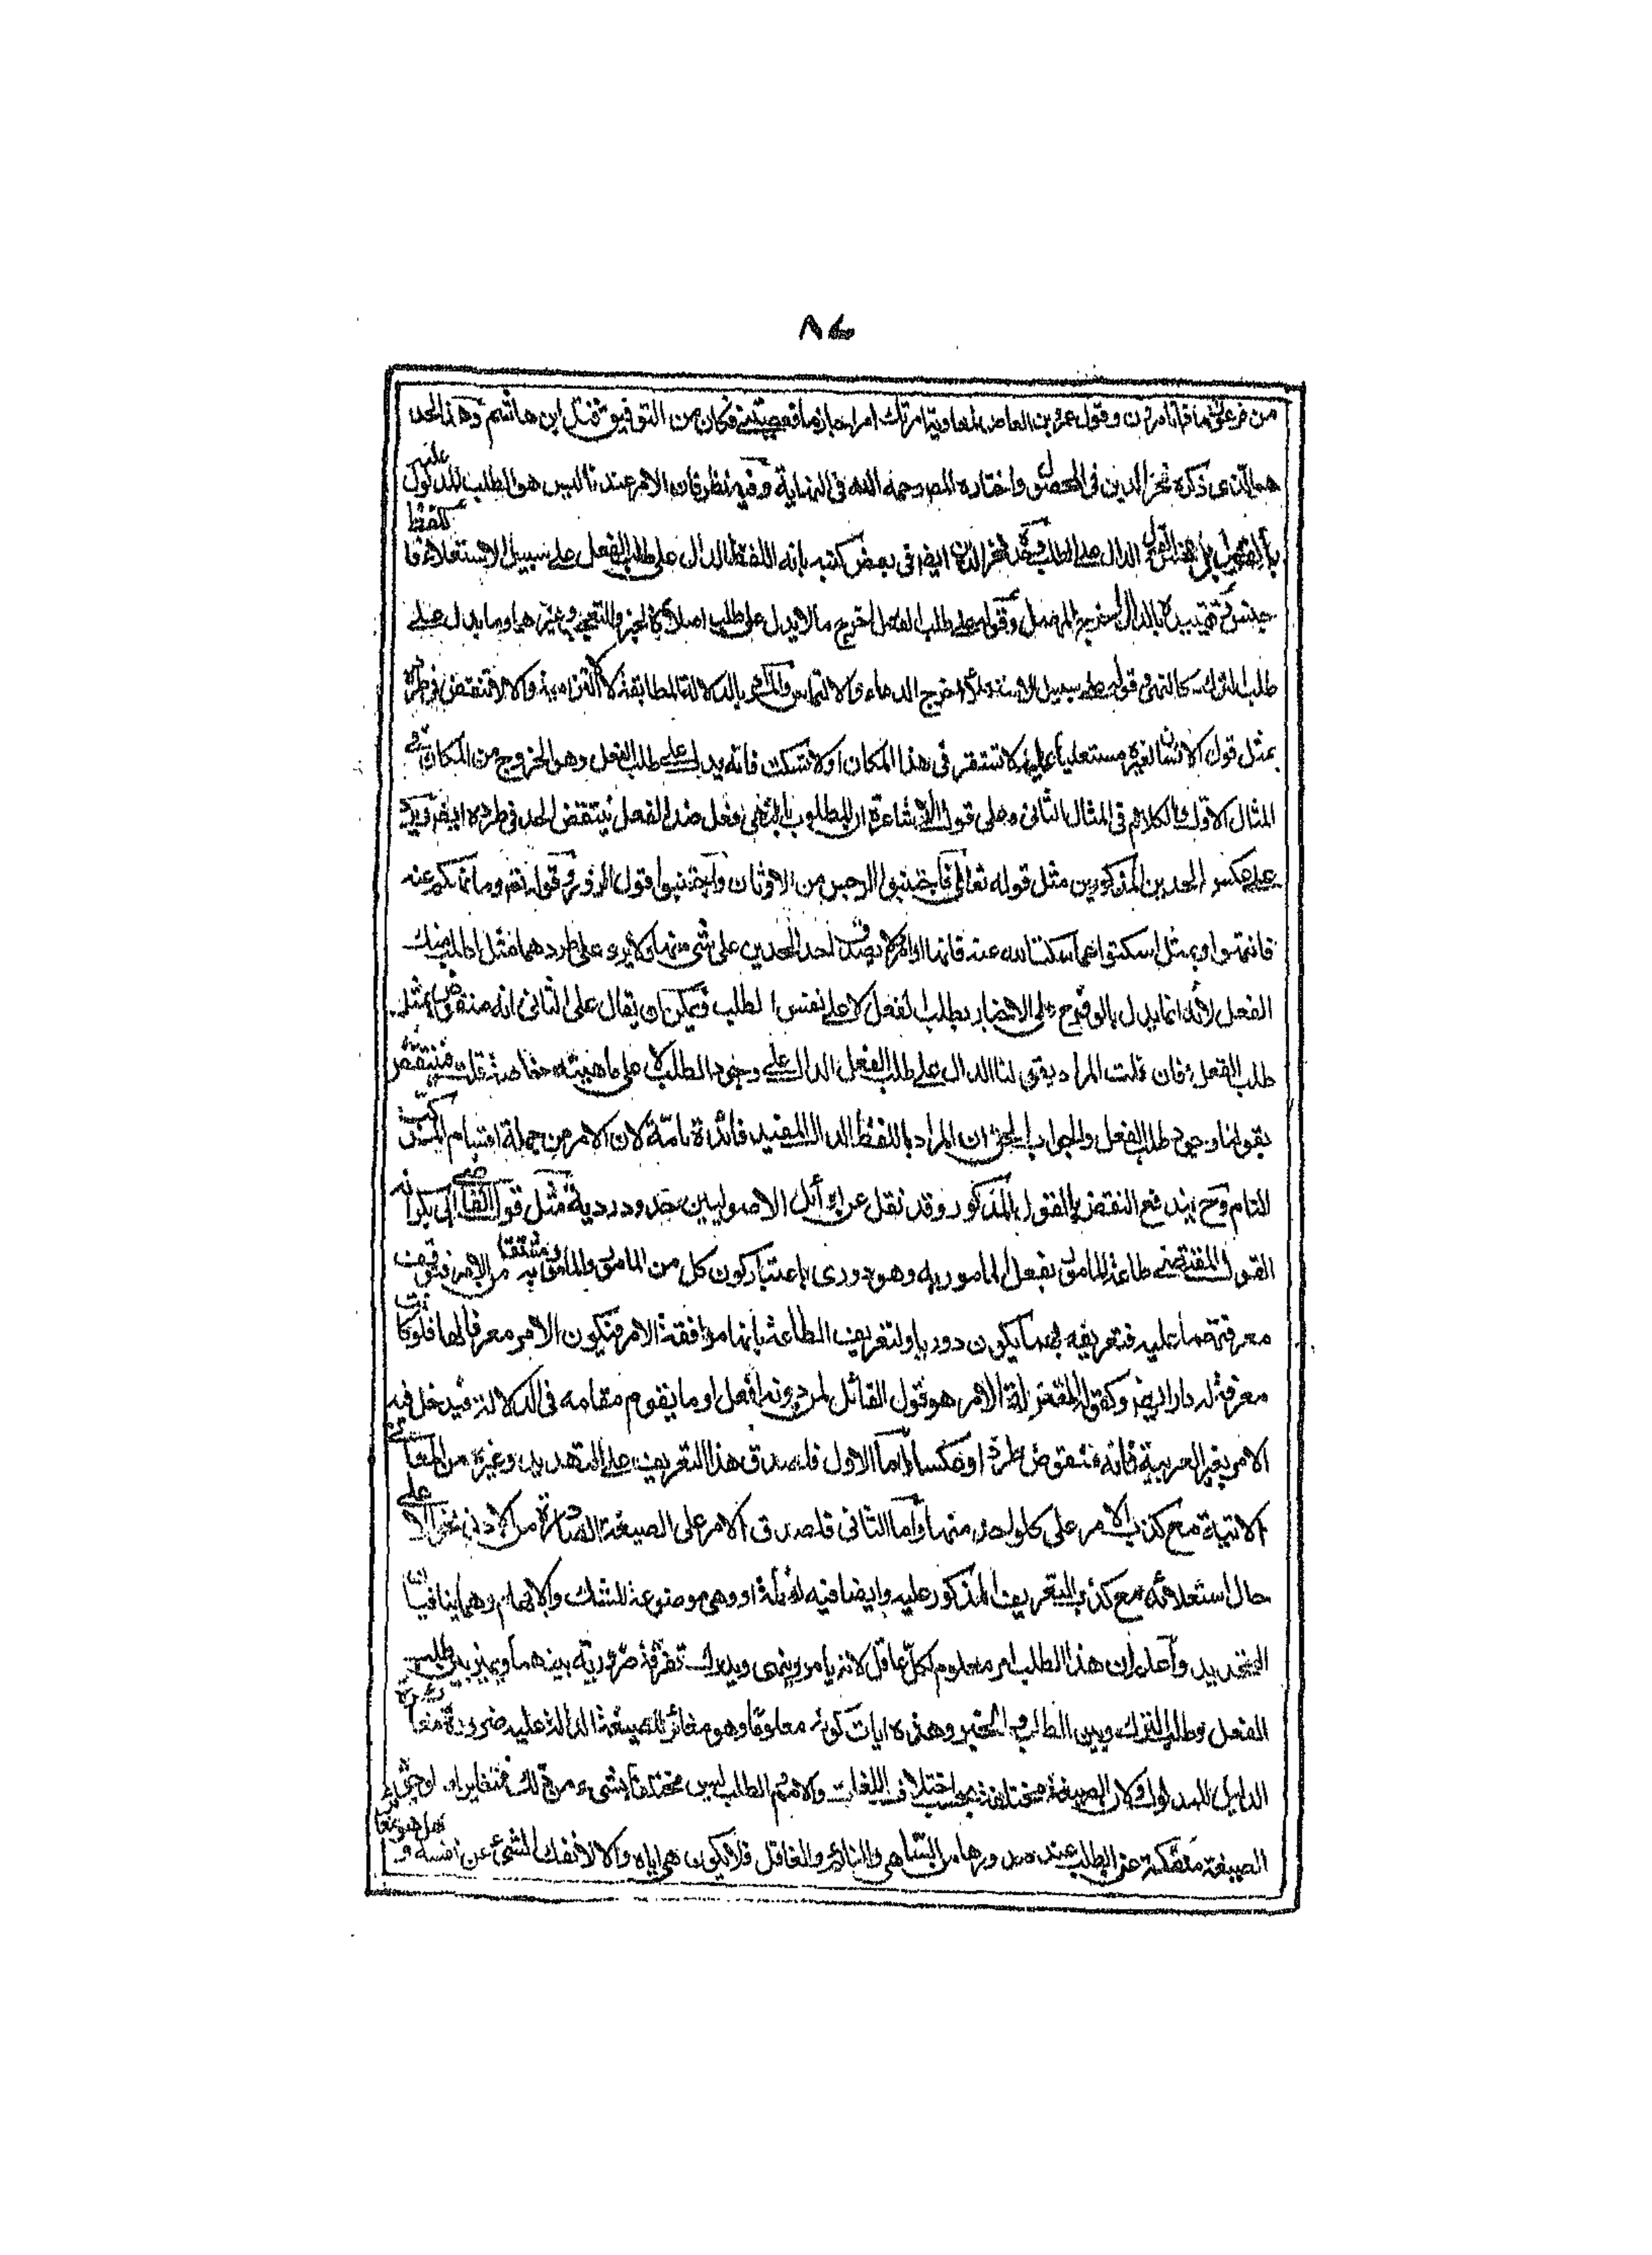 ٨٤
من فرعون ماذا تامرون وقول عمرو بن العاص لمعاوية امرتك امرا جازما فعصيتني وكان من التوفيق قتل ابن هاشم وهذا الحد
هو الذي ذكره فخر الدين في المحصول واختاره المص رحمه الله في النهاية وفيه نظر فان الامر عندنا ليس هو الطلب المدلول عليه
بالقول بل هذا القول الدال على الطلب وحده فخر الدين ايضا في بعض كتبه بانه اللفظ الدال على طلب الفعل على سبيل الاستعلاء فاللفظ
جنس وتقييده بالدال ليخرج المهمل وقوله على طلب الفعل اخرج ما لا يدل على طلب اصلا كالخبر والتعجب وغيرهما وما يدل على
طلب الترك كالنهي وقوله على سبيل الاستعلاء اخرج الدعاء والالتماس والمراد بالدلالة المطابقة لا الالتزامية والا لانتقض في طرده
بمثل قول الانسان لغيره مستعليا عليه لا تستقر في هذا المكان او لا تسكت فانه يدل على طلب الفعل وهو الخروج من المكان في
المثال الاول والكلام في المثال الثاني وعلى قول الاشاعرة ان المطلوب بالنهي فعل ضد الفعل ينتقض الحد في طرده ايضا ويرد
على عكس الحدين المذكورين مثل قوله تعالى فاجتنبوا الرجس من الاوثان واجتنبوا قول الزور وقوله تعم وما نهاكم عنه
فانتهوا وبمثل اسكتوا عما سكت الله عنه فانها اوامر لا يصدق احد الحدين على شي منها ولا يرد على طردهما مثل اطلب منك
الفعل لانه انما يدل بالوضع على الاخبار بطلب الفعل لا على نفس الطلب ويمكن ان يقال على الثاني انه منقوض بمثل
طلب الفعل فان قلت المراد بقولنا الدال على طلب الفعل الدال على وجود الطلب لا على ماهيته خاصة قلت فينتقض
بقولنا وجود طلب الفعل والجواب الحق ان المراد باللفظ الدال المفيد فائدة تامة لان الامر من جملة اقسام المركب
التام وح يندفع النقض بالقول المذكور وقد نقل عن اوائل الاصوليين حدود ردية مثل قول القاضي ابي بكر انه
القول المقتضي طاعة المامور بفعل المامور به وهو دوري باعتبار كون كل من المامور والمامور به مشتقا من الامر فيتوقف
معرفتهما عليه فتعريفه بهما يكون دوريا ولتعريف الطاعة بانها موافقة الامر فيكون الامر معرفا لها فلو كانت
معرفة له دار ايضا وكقول المعتزلة الامر هو قول القائل لمن دونه افعل او ما يقوم مقامه في الدلالة فيدخل فيه
الامر بغير العربية فانه منقوض طردا وعكسا اما الاول فلصدق هذا التعريف على التهديد وغيره من المعاني
الاتية مع كذب الامر على كل واحد منها واما الثاني فلصدق الامر على الصيغة الصادرة من الادنى نحو الاعلى
حال استعلائه مع كذب التعريف المذكور عليه وايضا فيه لفظة او وهي موضوعة للشك والابهام وهما ينافيان
التحديد واعلم ان هذا الطلب امر معلوم لكل عاقل لانه يامر وينهى ويدرك تفرقة ضرورية بينهما ويميز بين طلب
الفعل وطلب الترك وبين الطلب والخبر وهذه ايات كونه معلوما وهو مغائر للصيغة الدالة عليه ضرورة مغايرة
الدليل للمدلول ولان الصيغة مختلفة بحسب اختلاف اللغات والامم والطلب ليس مختلفا بشيء من ذلك فتغايرا ولوجود
الصيغة منفكة عن الطلب عند صدورها من الساهي والنائم والغافل فلا يكون هي اياه والا لانفك الشئ عن نفسه و